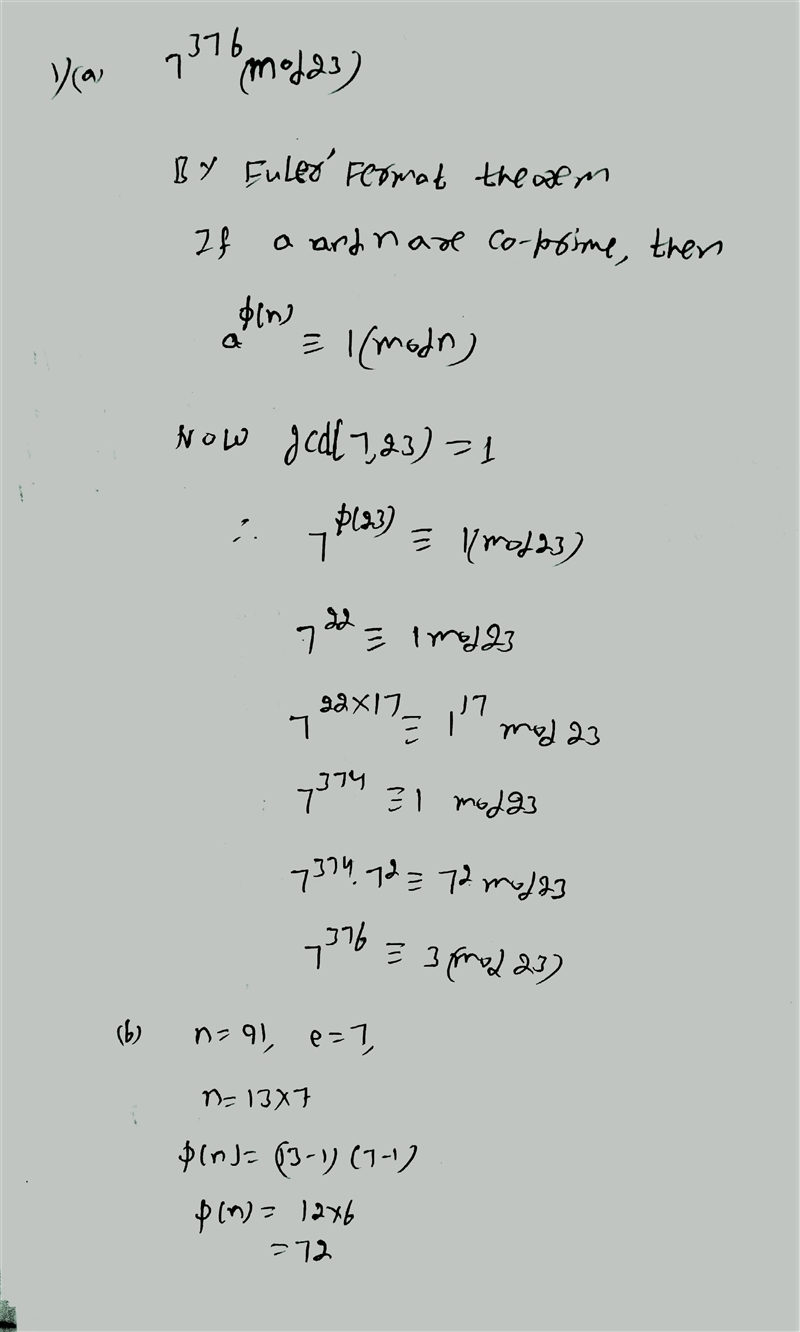 1)(a) 7^376 (mod 23)
By Euler' Fermat theorem
If a and n are co-prime, then
a^ϕ(n) ≡ 1(mod n)
Now gcd(7,23) = 1
∴ 7^ϕ(23) ≡ 1(mod 23)
7^22 ≡ 1 mod 23
7^22×17 ≡ 1^17 mod 23
7^374 ≡ 1 mod 23
7^374. 7^2 ≡ 7^2 mod 23
7^376 ≡ 3 (mod 23)
(b) n = 91, e = 7,
n = 13×7
ϕ(n) = (13-1) (7-1)
ϕ(n) = 12×6
= 72